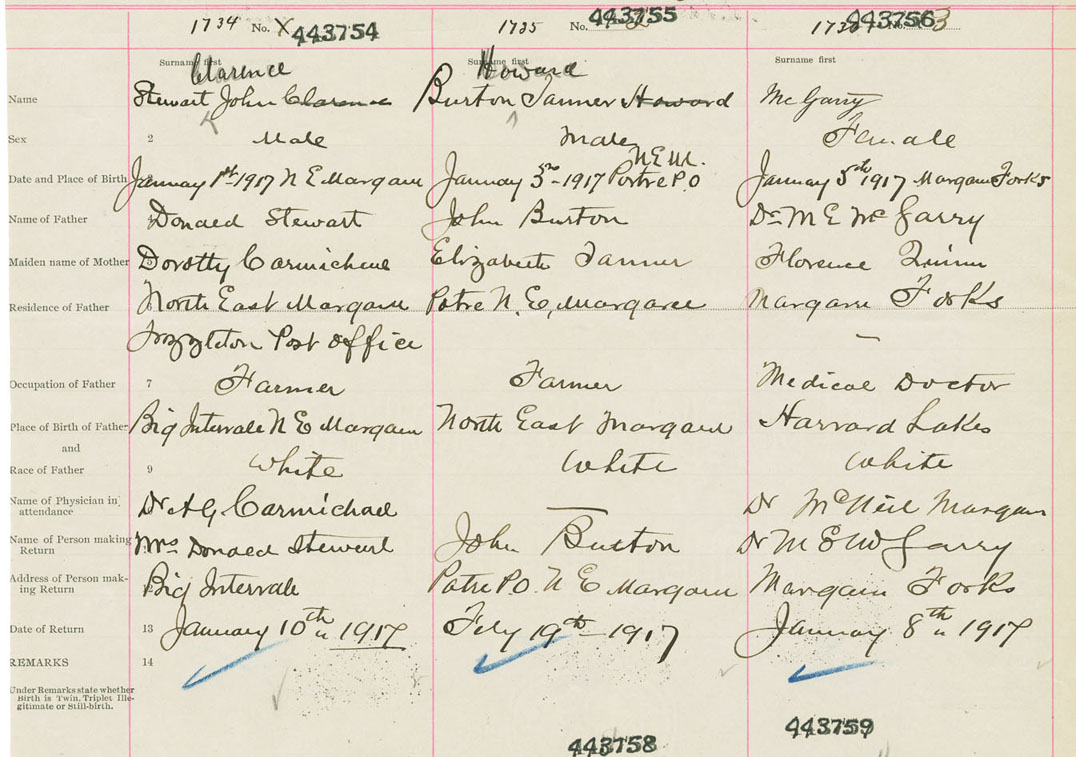 1734 No. X 443754 1735 No. 2 443755 No. 3 443756
Surname first Clarence Surname first Howard Surname first
Name Stewart John Clarence Burton Tanner Howard McGarry
Sex 2 Male Male Female
N E M.
Date and Place of Birth January 1st 1917 N E Margaree January 3rd 1917 P.O January 5th 1917 Margaree Forks
Name of Father Donald Stewart John Burton Dr M E McGarry
Maiden name of Mother 5 Dorothy Carmichael Elizabeth Tanner Florence Quinn
Residence of Father North East Margaree Potre N. E. Margaree Margaree Forks
Post office —
Occupation of Father 7 Farmer Farmer Medical Doctor
Place of Birth of Father Big Intervale N E Margaree North East Margaree Harvard Lakes
and
Race of Father 9 White White White
Name of Physician in attendance Dr A G Carmichael — Dr McNeil Margaree
Name of Person making Return Mrs Donald Stewart John Burton Dr M E McGarry
Address of Person making Return Big Intervale Potre P.O. N E Margaree Margaree Forks
Date of Return 13 January 10th 1917 Feby 19th 1917 January 8th 1917
REMARKS 14
Under Remarks state whether
Birth is Twin, Triplet Ille-
gitimate or Still-birth.
443758 443759